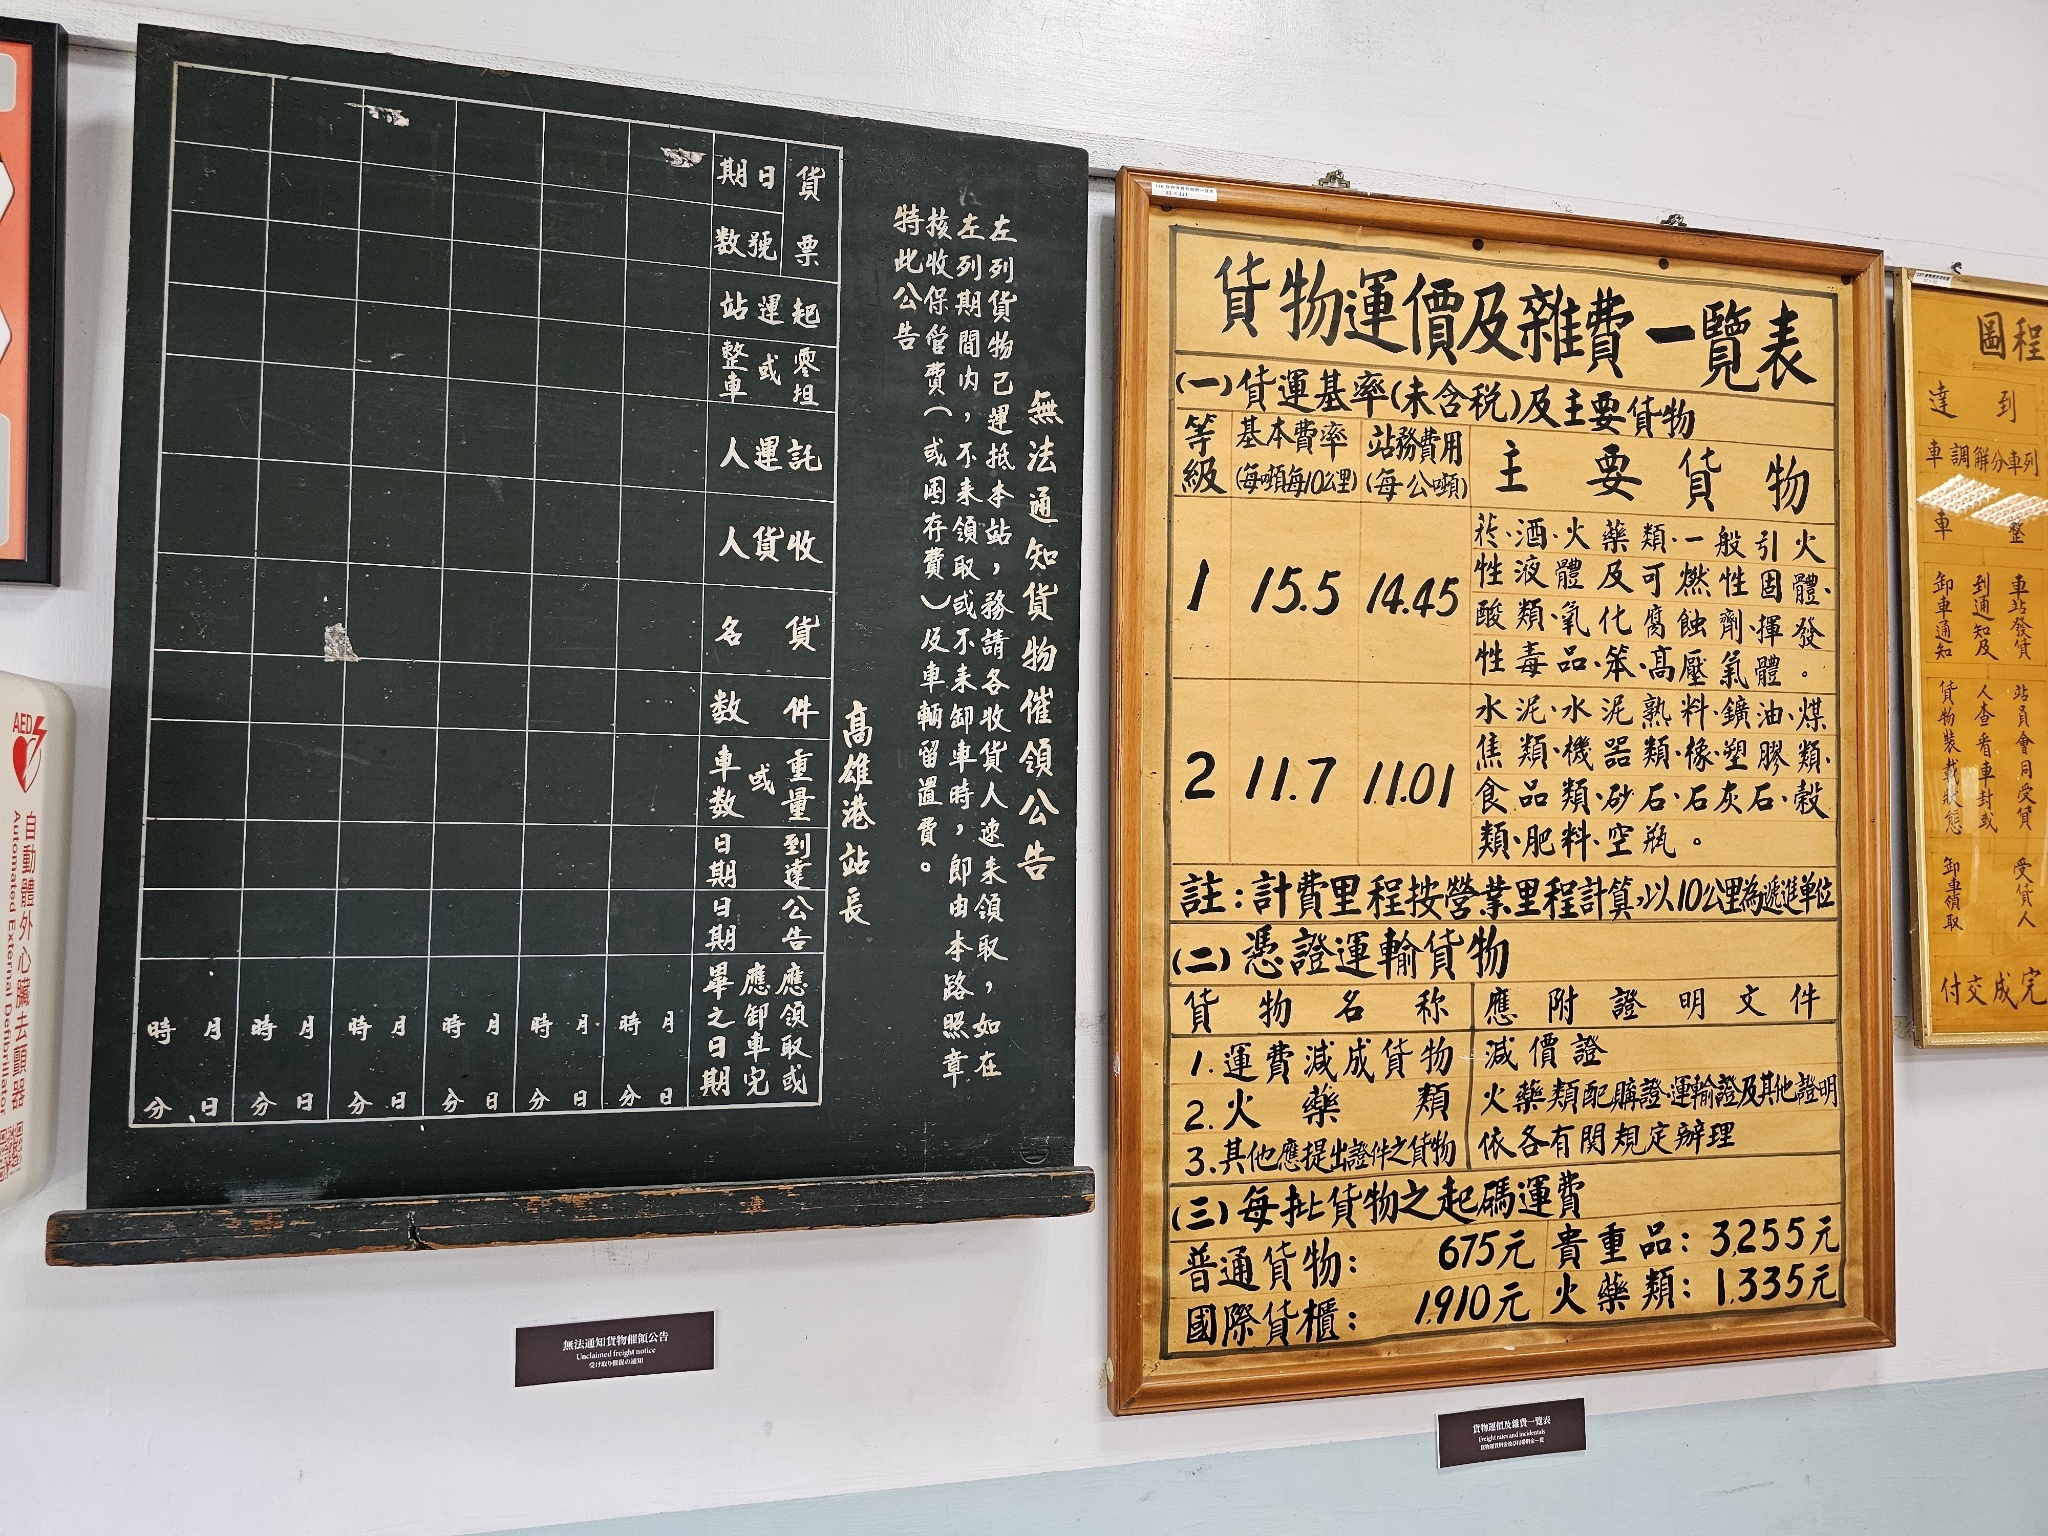 無法通知貨物催領公告
左列貨物已運抵本站，務請各收貨人速來領取，如在
左列期間內，不來領取或不來卸車時，即由本路照章
核收保管費（或囤存費）及車輛留置費。
特此公告
高雄港站長
貨票
日期
號數
起運站
零担或整車
託運人
收貨人
貨名
件數
重量或車數
到達日期
公告日期
應領取或應卸車完畢之日期
月日時分
月日時分
月日時分
月日時分
月日時分
月日時分
無法通知貨物催領公告
Unclaimed freight notice
受け取り催促の通知
AED
自動體外心臟去顫器
Automated External Defibrillator
貨物運價及雜費一覽表
(一)貨運基率(未含稅)及主要貨物
等級 基本費率(每噸每10公里) 站務費用(每公噸) 主要貨物
1 15.5 14.45
菸·酒·火藥類·一般引火
性液體及可燃性固體·
酸類·氧化腐蝕劑·揮發
性毒品·笨·高壓氣體。
2 11.7 11.01
水泥·水泥熟料·鑛油·煤
焦類·機器類·橡·塑膠類·
食品類·砂石·石灰石·穀
類·肥料·空瓶。
註：計費里程按營業里程計算，以10公里為遞進單位
(二)憑證運輸貨物
貨物名称 應附證明文件
1.運費減成貨物 減價證
2.火藥類 火藥類配購證·運輸證及其他證明
3.其他應提出證件之貨物 依各有関規定辦理
(三)每批貨物之起碼運費
普通貨物： 675元 貴重品：3,255元
國際貨櫃： 1,910元 火藥類：1,335元
貨物運價及雜費一覽表
Freight rates and incidentals
程圖
到達
列車分解調車
整車
車站發貨到通知及卸車通知
站員會同受貨人查看車封或貨物裝載狀態
受貨人卸車領取
完成交付